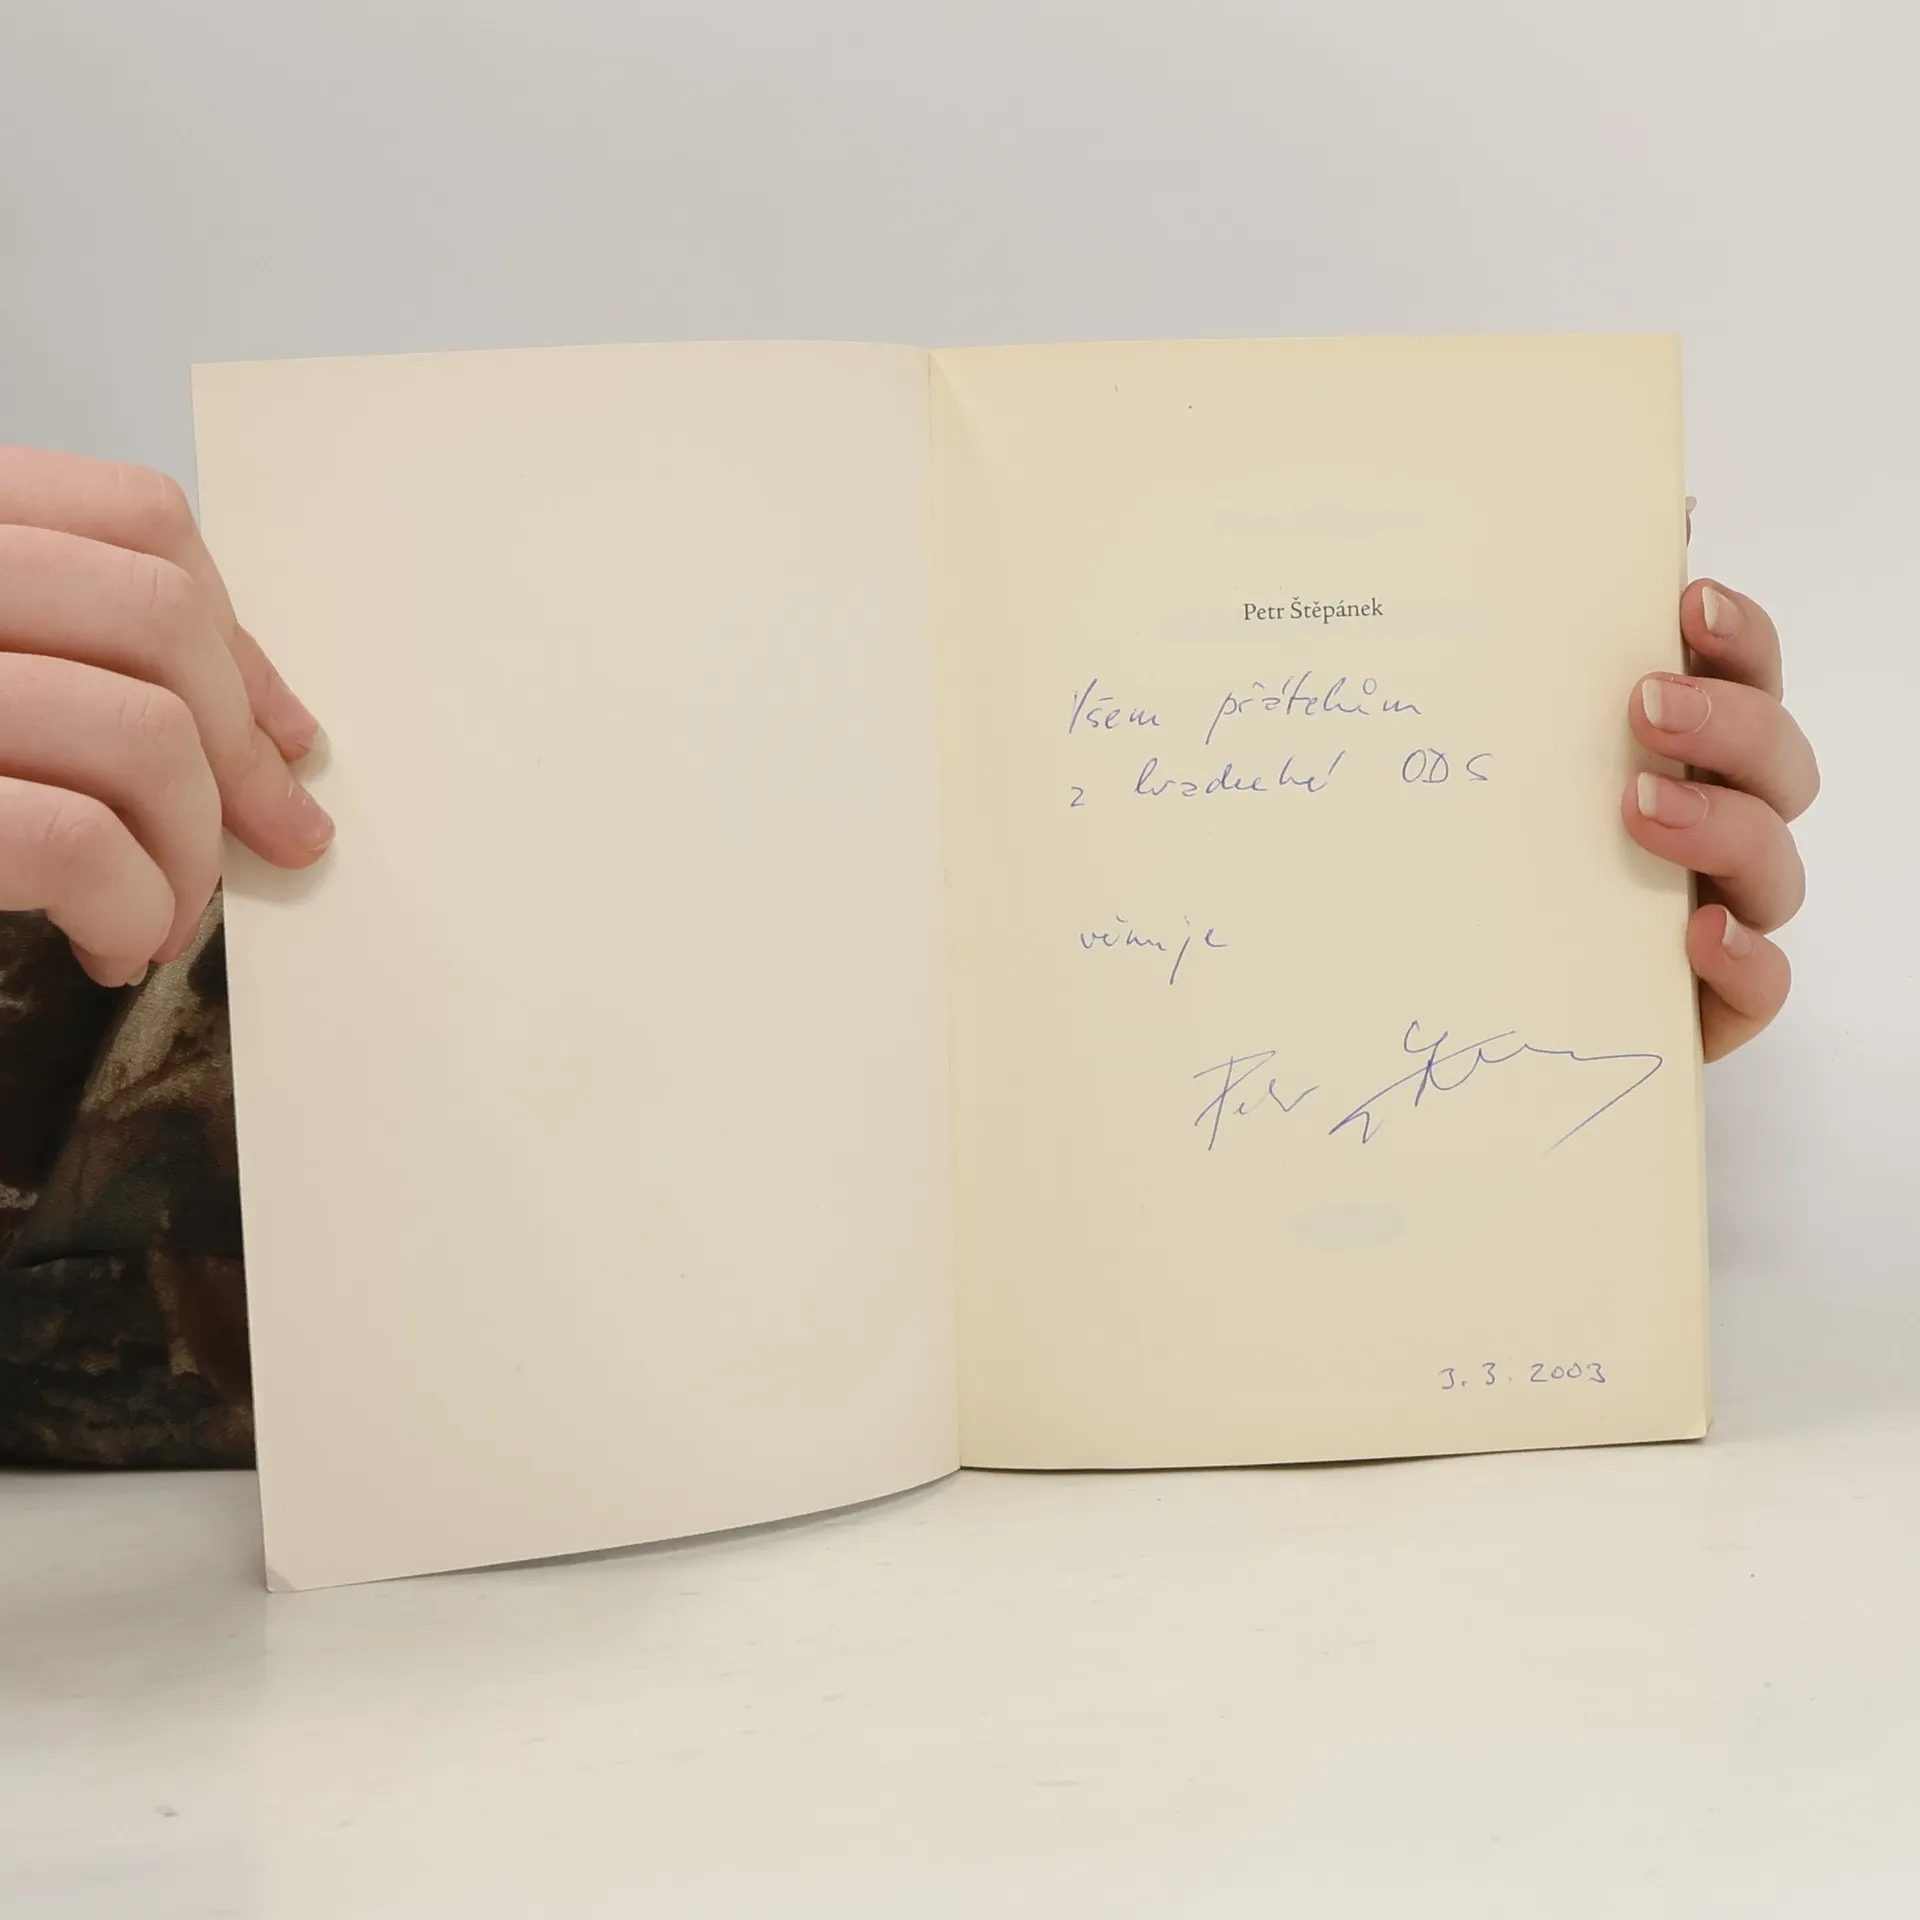 Petr Štěpánek
Všem přátelům
z ODS
věnuje
Petr
3. 3. 2003